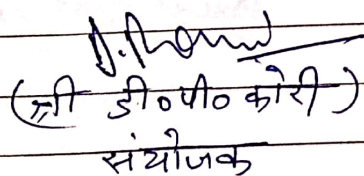 (श्री डी०पी० कोरी)
संयोजक